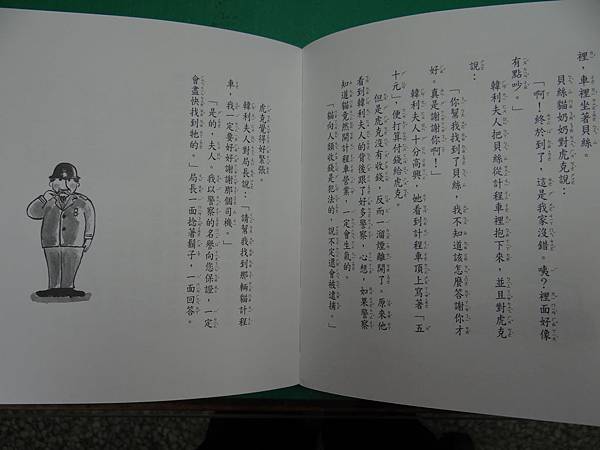 裡，車裡坐著貝絲。
貝絲貓奶奶對虎克說：
「啊！終於到了，這是我家沒錯。咦？裡面好像
有點吵。」
韓利夫人把貝絲從計程車裡抱下來，並且對虎克
說：
「你幫我找到了貝絲，我不知道該怎麼答謝你才
好。真是謝謝你啊！」
韓利夫人十分高興，她看到計程車頂上寫著「五
十元」，便打算付錢給虎克。
但是虎克沒有收錢，反而一溜煙離開了。原來他
看到韓利夫人的背後跟了好多警察，心想，如果警察
知道貓竟然開計程車營業，一定會生氣的。
「貓向人類收錢是犯法的，說不定還會被逮捕。」
虎克覺得好緊張。
韓利夫人對局長說：「請幫我找到那輛貓計程
車，我一定要好好謝謝那個司機。」
「是的，夫人。我以警察的名譽向您保證，一定
會盡快找到牠的。」局長一面捻著鬍子，一面回答。